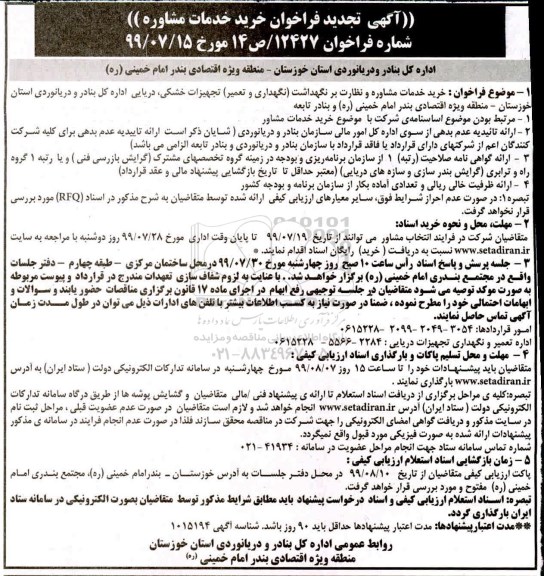 ((آگهی تجدید فراخوان خرید خدمات مشاوره ))
شماره فراخوان ۱۲۴۲۷/ص۱۴ مورخ ۹۹/۰۷/۱۵
اداره کل بنادر ودریانوردی استان خوزستان – منطقه ویژه اقتصادی بندر امام خمینی (ره)
۱ – موضوع فراخوان : خرید خدمات مشاوره و نظارت بر نگهداشت (نگهداری و تعمیر) تجهیزات خشکی، دریایی اداره کل بنادر و دریانوردی استان
خوزستان – منطقه ویژه اقتصادی بندر امام خمینی (ره) و بنادر تابعه
۱ – مرتبط بودن موضوع اساسنامه‌ی شرکت با موضوع خرید خدمات مشاور
۲ – ارائه تائیدیه عدم بدهی از سوی اداره کل امور مالی سازمان بنادر و دریانوردی ( شایان ذکر است ارائه تاییدیه عدم بدهی برای کلیه شرکت
کنندگان اعم از شرکتهای دارای قرارداد یا فاقد قرارداد با سازمان بنادر و دریانوردی و بنادر تابعه الزامی می باشد)
۳ – ارائه گواهی نامه صلاحیت (رتبه) ۱ از سازمان برنامه‌ریزی و بودجه در زمینه گروه تخصصهای مشترک (گرایش بازرسی فنی) و یا رتبه ۱ گروه
راه و ترابری (گرایش بندر سازی و سازه های دریایی) (معتبر حداقل تا تاریخ بازگشایی پیشنهاد مالی و عقد قرارداد)
۴ – ارائه ظرفیت خالی ریالی و تعدادی آماده بکار از سازمان برنامه و بودجه کشور
تبصره۱: در صورت عدم احراز شرایط فوق، سایر معیارهای ارزیابی کیفی ارائه شده توسط متقاضیان به شرح مذکور در اسناد (RFQ) مورد بررسی
قرار نخواهد گرفت.
۲ – مهلت، محل و نحوه خرید اسناد:
متقاضیان شرکت در فرایند انتخاب مشاور می توانند از تاریخ ۹۹/۰۷/۱۹ تا پایان وقت اداری مورخ ۹۹/۰۷/۲۸ روز دوشنبه با مراجعه به سایت
www.setadiran.ir نسبت به دریافت ( خرید) رایگان اسناد اقدام نمایند.
۳ – جلسه پرسش و پاسخ اسناد رأس ساعت ۱۰ صبح روز چهارشنبه مورخ ۹۹/۰۷/۳۰ درمحل ساختمان مرکزی – طبقه چهارم – دفتر جلسات
واقع در مجتمع بندری امام خمینی (ره) برگزار خواهد شد. . با عنایت به لزوم شفاف سازی تعهدات مندرج در قرارداد و پیوست مربوطه
به صورت موکد توصیه می شود متقاضیان در جلسه توجیهی رفع ابهام در اجرای ماده ۱۷ قانون برگزاری مناقصات حضور یابند و سوالات و
ابهامات احتمالی خود را مطرح نموده ، ضمنا در صورت نیاز به کسب اطلاعات بیشتر با تلفن های ادارات ذیل می توان در طول مدت زمان
آگهی تماس حاصل نمایند.
امور قراردادها: ۳۰۵۴ – ۲۰۴۹ – ۲۰۹۹ – ۰۶۱۵۲۲۸
اداره تعمیر و نگهداری تجهیزات دریایی : ۲۲۸۴ – ۵۵۶۶ – ۰۶۱۵۲۲۸
۴ – مهلت و محل تسلیم پاکات و بارگذاری اسناد ارزیابی کیفی:
متقاضیان باید پیشنهادات خود را تا ساعت ۱۵ روز ۹۹/۰۸/۰۷ مورخ چهارشنبه در سامانه تدارکات الکترونیکی دولت ( ستاد ایران) به آدرس
www.setadiran.ir بارگذاری نمایند .
تبصره:کلیه ی مراحل برگزاری از دریافت اسناد استعلام تا ارائه ی پیشنهاد فنی /مالی متقاضیان و گشایش پوشه ها از طریق درگاه سامانه تدارکات
الکترونیکی دولت ( ستاد ایران) آدرس www.setadiran.ir انجام خواهد شد و لازم است متقاضیان در صورت عدم عضویت قبلی ، مراحل ثبت نام
در سایت مذکور و دریافت گواهی امضای الکترونیکی را جهت شرکت در مناقصه محقق سازند فلذا در صورت عدم انجام فرایند در سامانه ی مذکور
پیشنهادات ارائه شده به صورت فیزیکی مورد قبول واقع نمیگردد.
شماره تماس سامانه ستاد جهت انجام مراحل عضویت در سامانه : ۴۱۹۳۴ – ۰۲۱
۵ – زمان بازگشایی اسناد استعلام ارزیابی کیفی :
پاکت ارزیابی کیفی متقاضیان از تاریخ ۹۹/۰۸/۱۰ در محل دفتر جلسات به آدرس خوزستان – بندرامام خمینی (ره)، مجتمع بندری امام
خمینی (ره) مفتوح و مورد بررسی قرار خواهد گرفت.
تبصره: اسناد استعلام ارزیابی کیفی و اسناد درخواست پیشنهاد باید مطابق شرایط مذکور توسط متقاضیان بصورت الکترونیکی در سامانه ستاد
ایران بارگذاری گردد.
**مدت اعتبارپیشنهادها: مدت اعتبار پیشنهادها حداقل باید ۹۰ روز باشد. شناسه آگهی ۱۰۱۵۱۹۴
روابط عمومی اداره کل بنادر و دریانوردی استان خوزستان
منطقه ویژه اقتصادی بندر امام خمینی (ره)